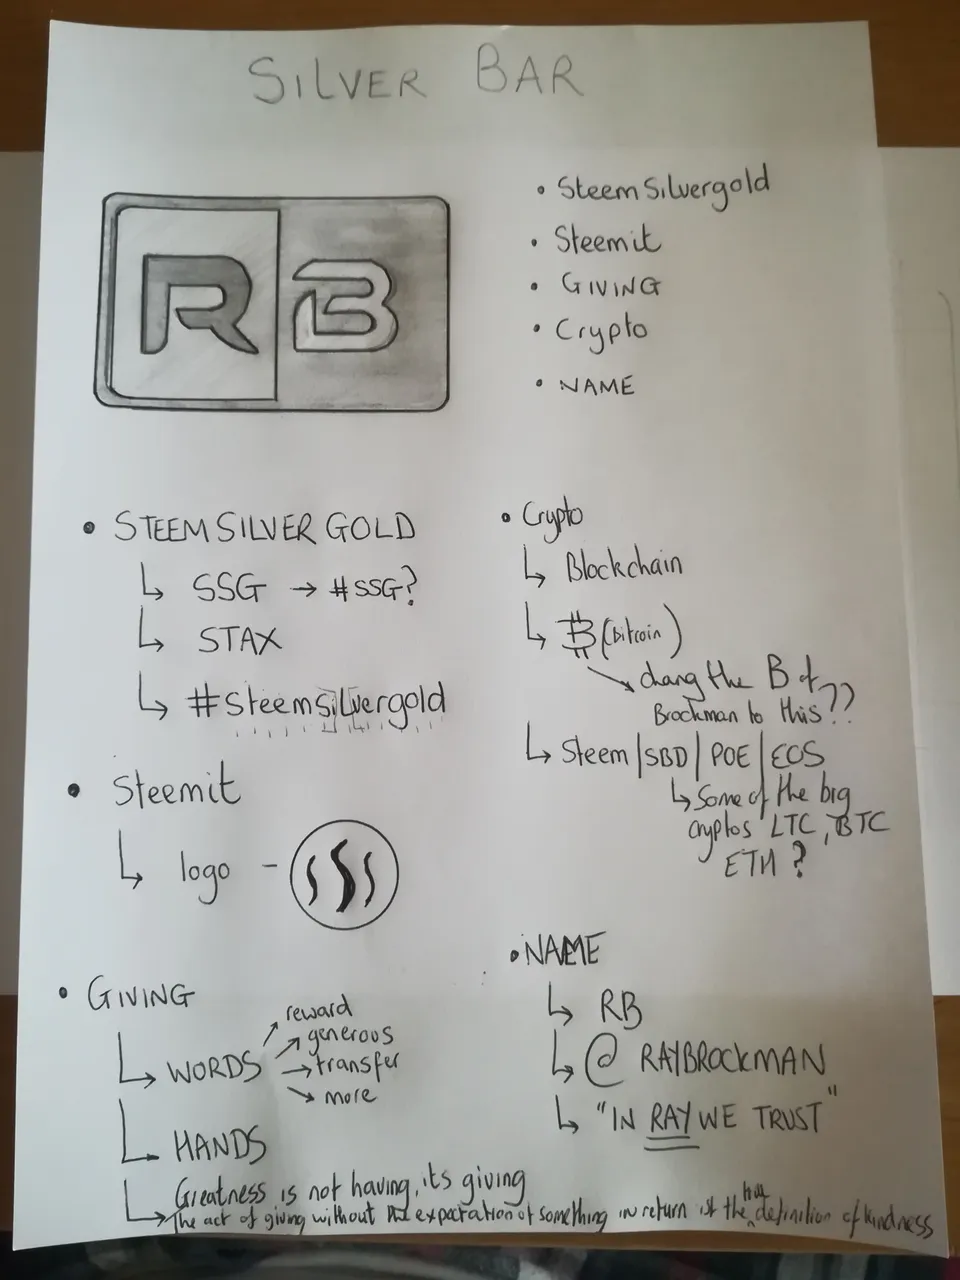 SILVER BAR
RB
• SteemSilvergold
• Steemit
• GIVING
• Crypto
• NAME
• STEEMSILVER GOLD
↳ SSG → #SSG?
↳ STAX
↳ #Steemsilvergold
• Steemit
↳ logo -
• GIVING
↳ WORDS
reward
generous
transfer
more
↳ HANDS
↳ Greatness is not having, its giving
The act of giving without the expectation of something in return is the true definition of kindness
• Crypto
↳ Blockchain
↳ ₿ (bitcoin)
chang the B of
Brockman to this??
↳ Steem|SBD|POE|EOS
↳ Some of the big
cryptos LTC, BTC
ETH?
• NAME
↳ RB
↳ @RAYBROCKMAN
↳ "IN RAY WE TRUST"